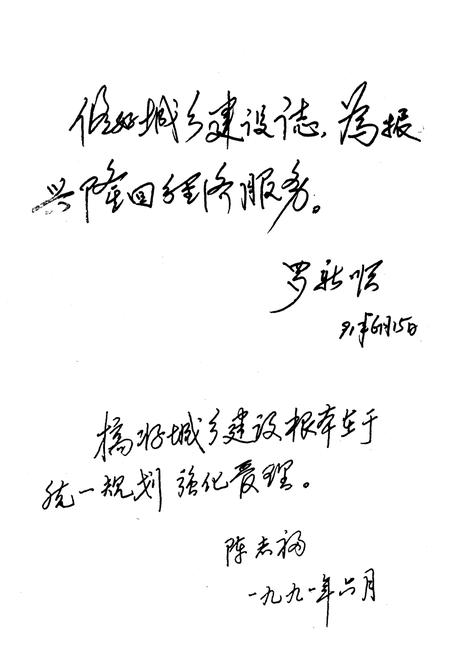 修好城乡建设志，为振
兴隆回经济服务。
罗新顺
91年6月15日
搞好城乡建设根本在于
统一规划 强化管理。
陈志福
一九九一年六月